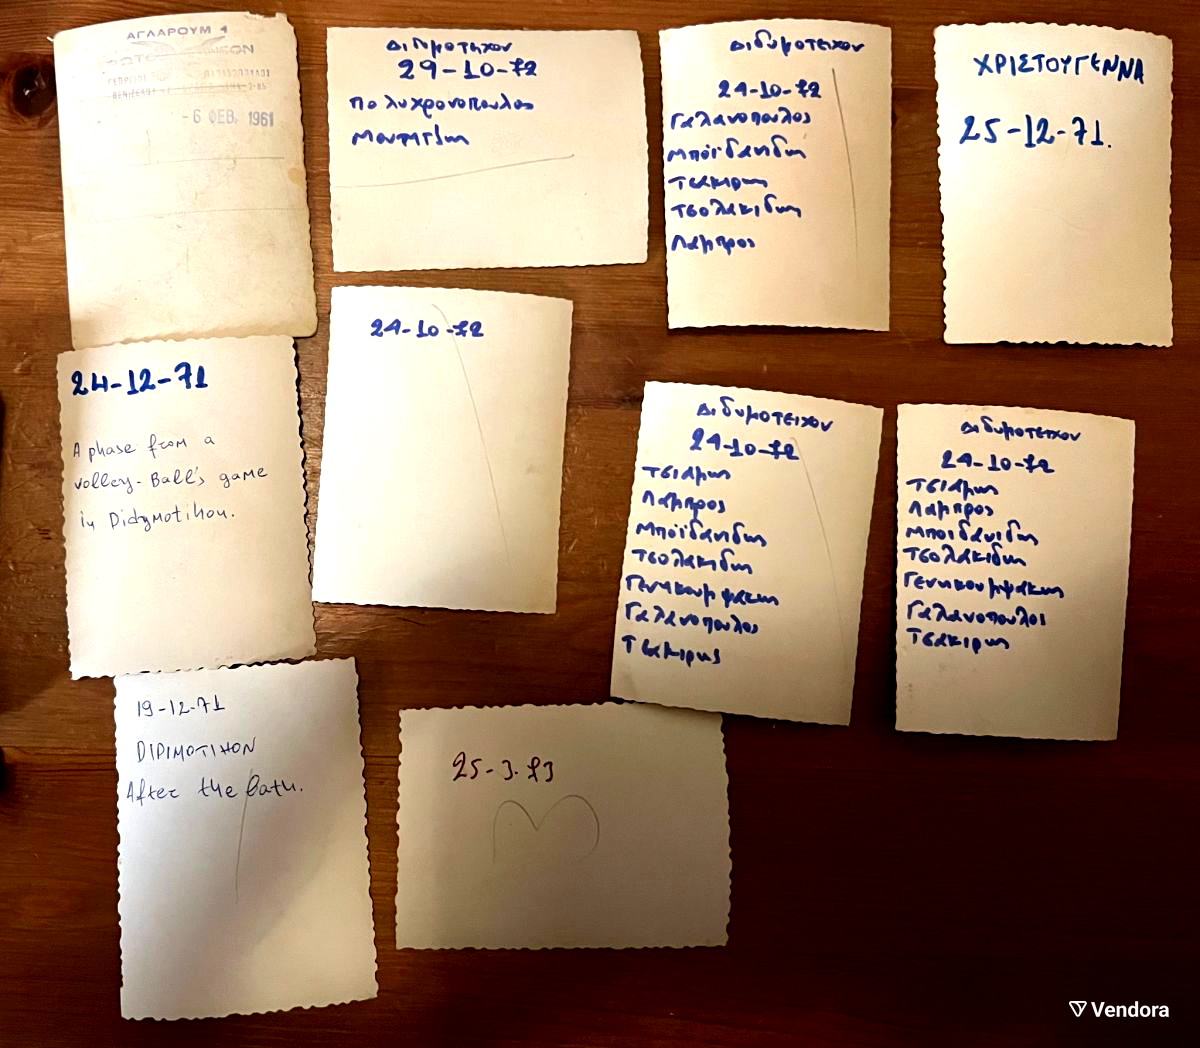 ΑΓΛΑΡΟΥΜ 4
-6 ΦΕΒ. 1961
Διδυμοτειχον
29-10-72
Πολυχρονοπουλος
Διδυμοτειχον
24-10-72
Γαλανοπουλος
Μποϊδανιδης
Τσακιρης
Τσολακιδης
Λαμπρος
ΧΡΙΣΤΟΥΓΕΝΝΑ
25-12-71.
24-12-71
A phase from a
volley-Ball's game
in Didymotihon.
24-10-72
Διδυμοτειχον
24-10-72
Τσιαμης
Λαμπρος
Μποϊδανιδης
Τσολακιδης
Γενηκουμψακης
Γαλανοπουλος
Τσακιρης
Διδυμοτειχον
24-10-72
Τσιαμης
Λαμπρος
Μποιδανιδης
Τσολακιδης
Γενικουμψακης
Γαλανοπουλος
Τσακιρης
19-12-71
DIDIMOTIHON
After the bath.
25-3-73
Vendora